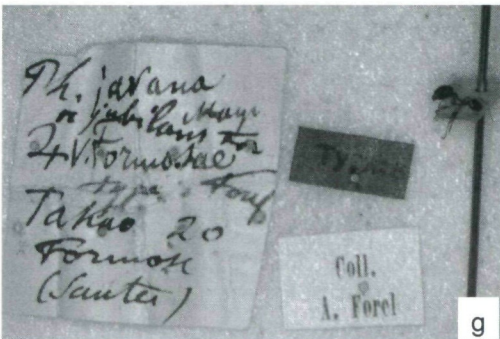 Ph. javana
jubilans For
V. Formosae
type Forel
Takao 20
Formose
(Sauter)
Typus
Coll.
A. Forel
g